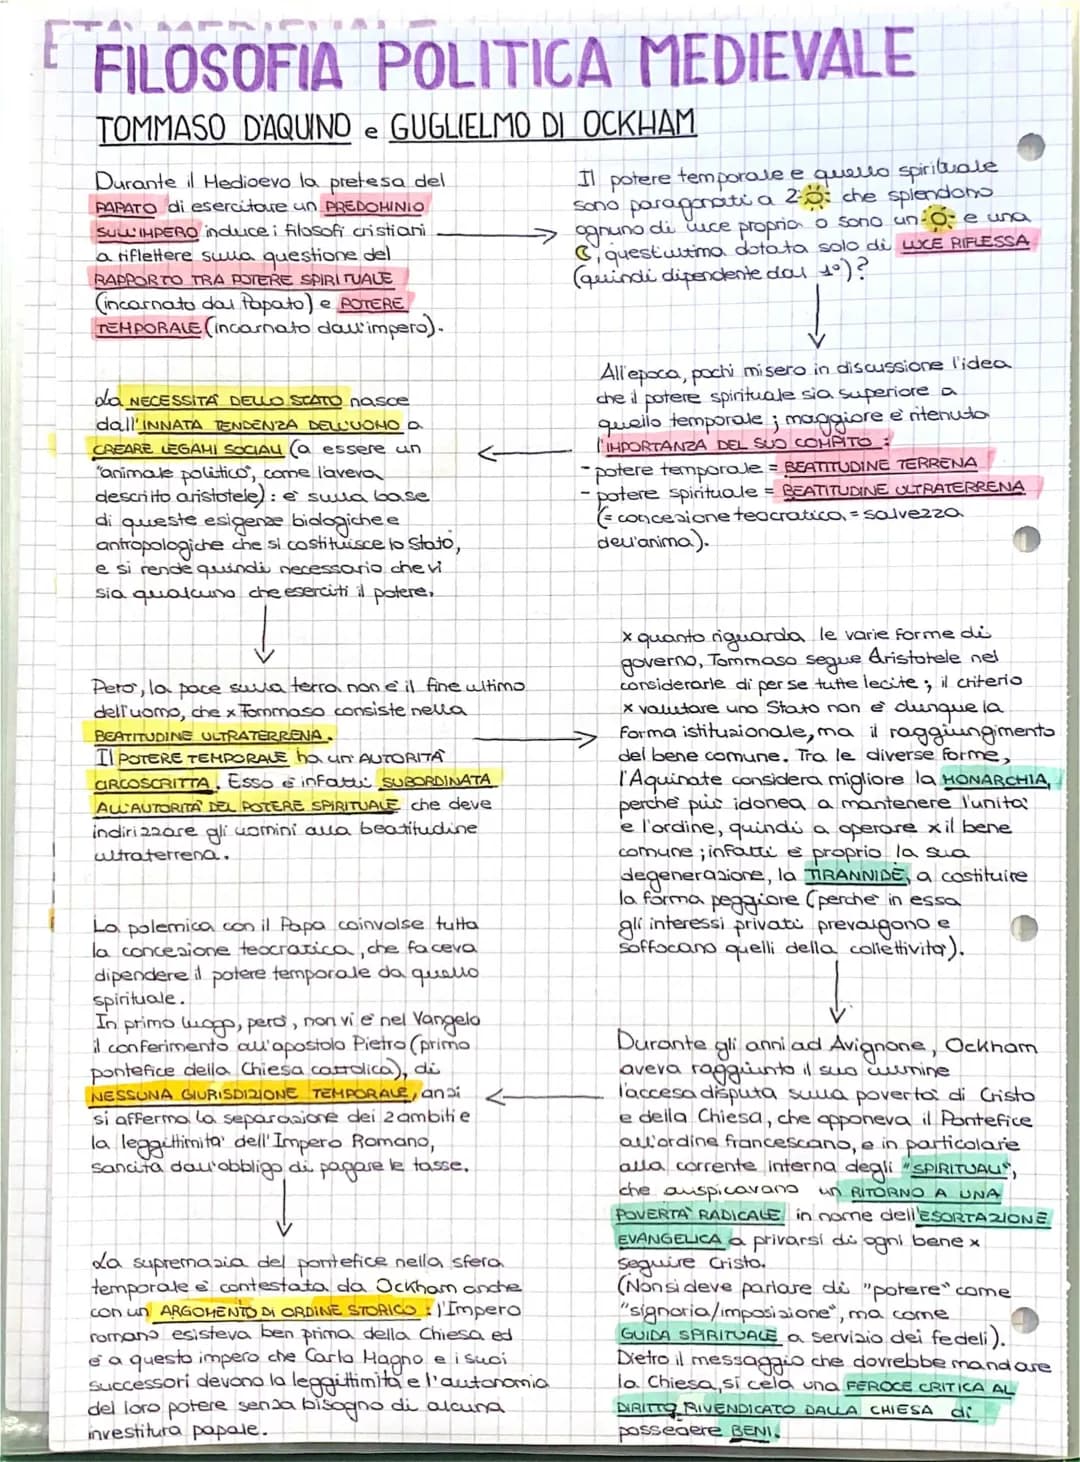 FILOSOFIA POLITICA MEDIEVALE
TOMMASO D'AQUINO e GUGLIELMO DI OCKHAM
Durante il Medioevo la pretesa del
PAPATO di esercitare un PREDOMINIO
SULL'IMPERO induce i filosofi cristiani
a riflettere sulla questione del
RAPPORTO TRA POTERE SPIRITUALE
(incarnato dal Papato) e POTERE
TEMPORALE (incarnato dall'impero).
Il potere temporale e quello spirituale
sono paragonati a 2 che splendono
ognuno di luce propria o sono un e una
, quest'ultima dotata solo di LUCE RIFLESSA
(quindi dipendente dal 1°)?
All'epoca, pochi misero in discussione l'idea
che il potere spirituale sia superiore a
quello temporale; maggiore è ritenuta
l'IMPORTANZA DEL SUO COMPITO:
- potere temporale = BEATITUDINE TERRENA
- potere spirituale = BEATITUDINE ULTRATERRENA
(= concezione teocratica = salvezza
dell'anima).
La NECESSITÀ DELLO STATO nasce
dall'INNATA TENDENZA DELL'UOMO a
CREARE LEGAMI SOCIALI (a essere un
"animale politico", come l'aveva
descritto aristotele): è sulla base
di queste esigenze biologiche e
antropologiche che si costituisce lo Stato,
e si rende quindi necessario che vi
sia qualcuno che eserciti il potere.
Però, la pace sulla terra non è il fine ultimo
dell'uomo, che x Tommaso consiste nella
BEATITUDINE ULTRATERRENA.
Il POTERE TEMPORALE ha un'AUTORITÀ
CIRCOSCRITTA. Esso è infatti SUBORDINATA
ALL'AUTORITÀ DEL POTERE SPIRITUALE che deve
indirizzare gli uomini alla beatitudine
ultraterrena.
x quanto riguarda le varie forme di
governo, Tommaso segue Aristotele nel
considerarle di per sé tutte lecite; il criterio
x valutare uno Stato non è dunque la
forma istituzionale, ma il raggiungimento
del bene comune. Tra le diverse forme,
l'Aquinate considera migliore la MONARCHIA,
perché più idonea a mantenere l'unità
e l'ordine, quindi a operare x il bene
comune; infatti è proprio la sua
degenerazione, la TIRANNIDE, a costituire
la forma peggiore (perché in essa
gli interessi privati prevalgono e
soffocano quelli della collettività).
Durante gli anni ad Avignone, Ockham
aveva raggiunto il suo culmine
l'accesa disputa sulla povertà di Cristo
e della Chiesa, che opponeva il Pontefice
all'ordine francescano, e in particolare
alla corrente interna degli "SPIRITUALI",
che auspicavano un RITORNO A UNA
POVERTÀ RADICALE in nome dell'ESORTAZIONE
EVANGELICA a privarsi di ogni bene x
seguire Cristo.
(Non si deve parlare di "potere" come
"signoria/imposizione", ma come
GUIDA SPIRITUALE a servizio dei fedeli).
Dietro il messaggio che dovrebbe mandare
la Chiesa, si cela una FEROCE CRITICA AL
DIRITTO RIVENDICATO DALLA CHIESA di
possedere BENI.
La polemica con il Papa coinvolse tutta
la concezione teocratica, che faceva
dipendere il potere temporale da quello
spirituale.
In primo luogo, però, non vi è nel Vangelo
il conferimento all'apostolo Pietro (primo
pontefice della Chiesa cattolica), di
NESSUNA GIURISDIZIONE TEMPORALE, anzi
si afferma la separazione dei 2 ambiti e
la leggittimità dell'Impero Romano,
sancita dall'obbligo di pagare le tasse.
La supremazia del pontefice nella sfera
temporale è contestata da Ockham anche
con un ARGOMENTO DI ORDINE STORICO: l'Impero
romano esisteva ben prima della Chiesa ed
è a questo impero che Carlo Magno e i suoi
successori devono la leggittimità e l'autonomia
del loro potere senza bisogno di alcuna
investitura papale.